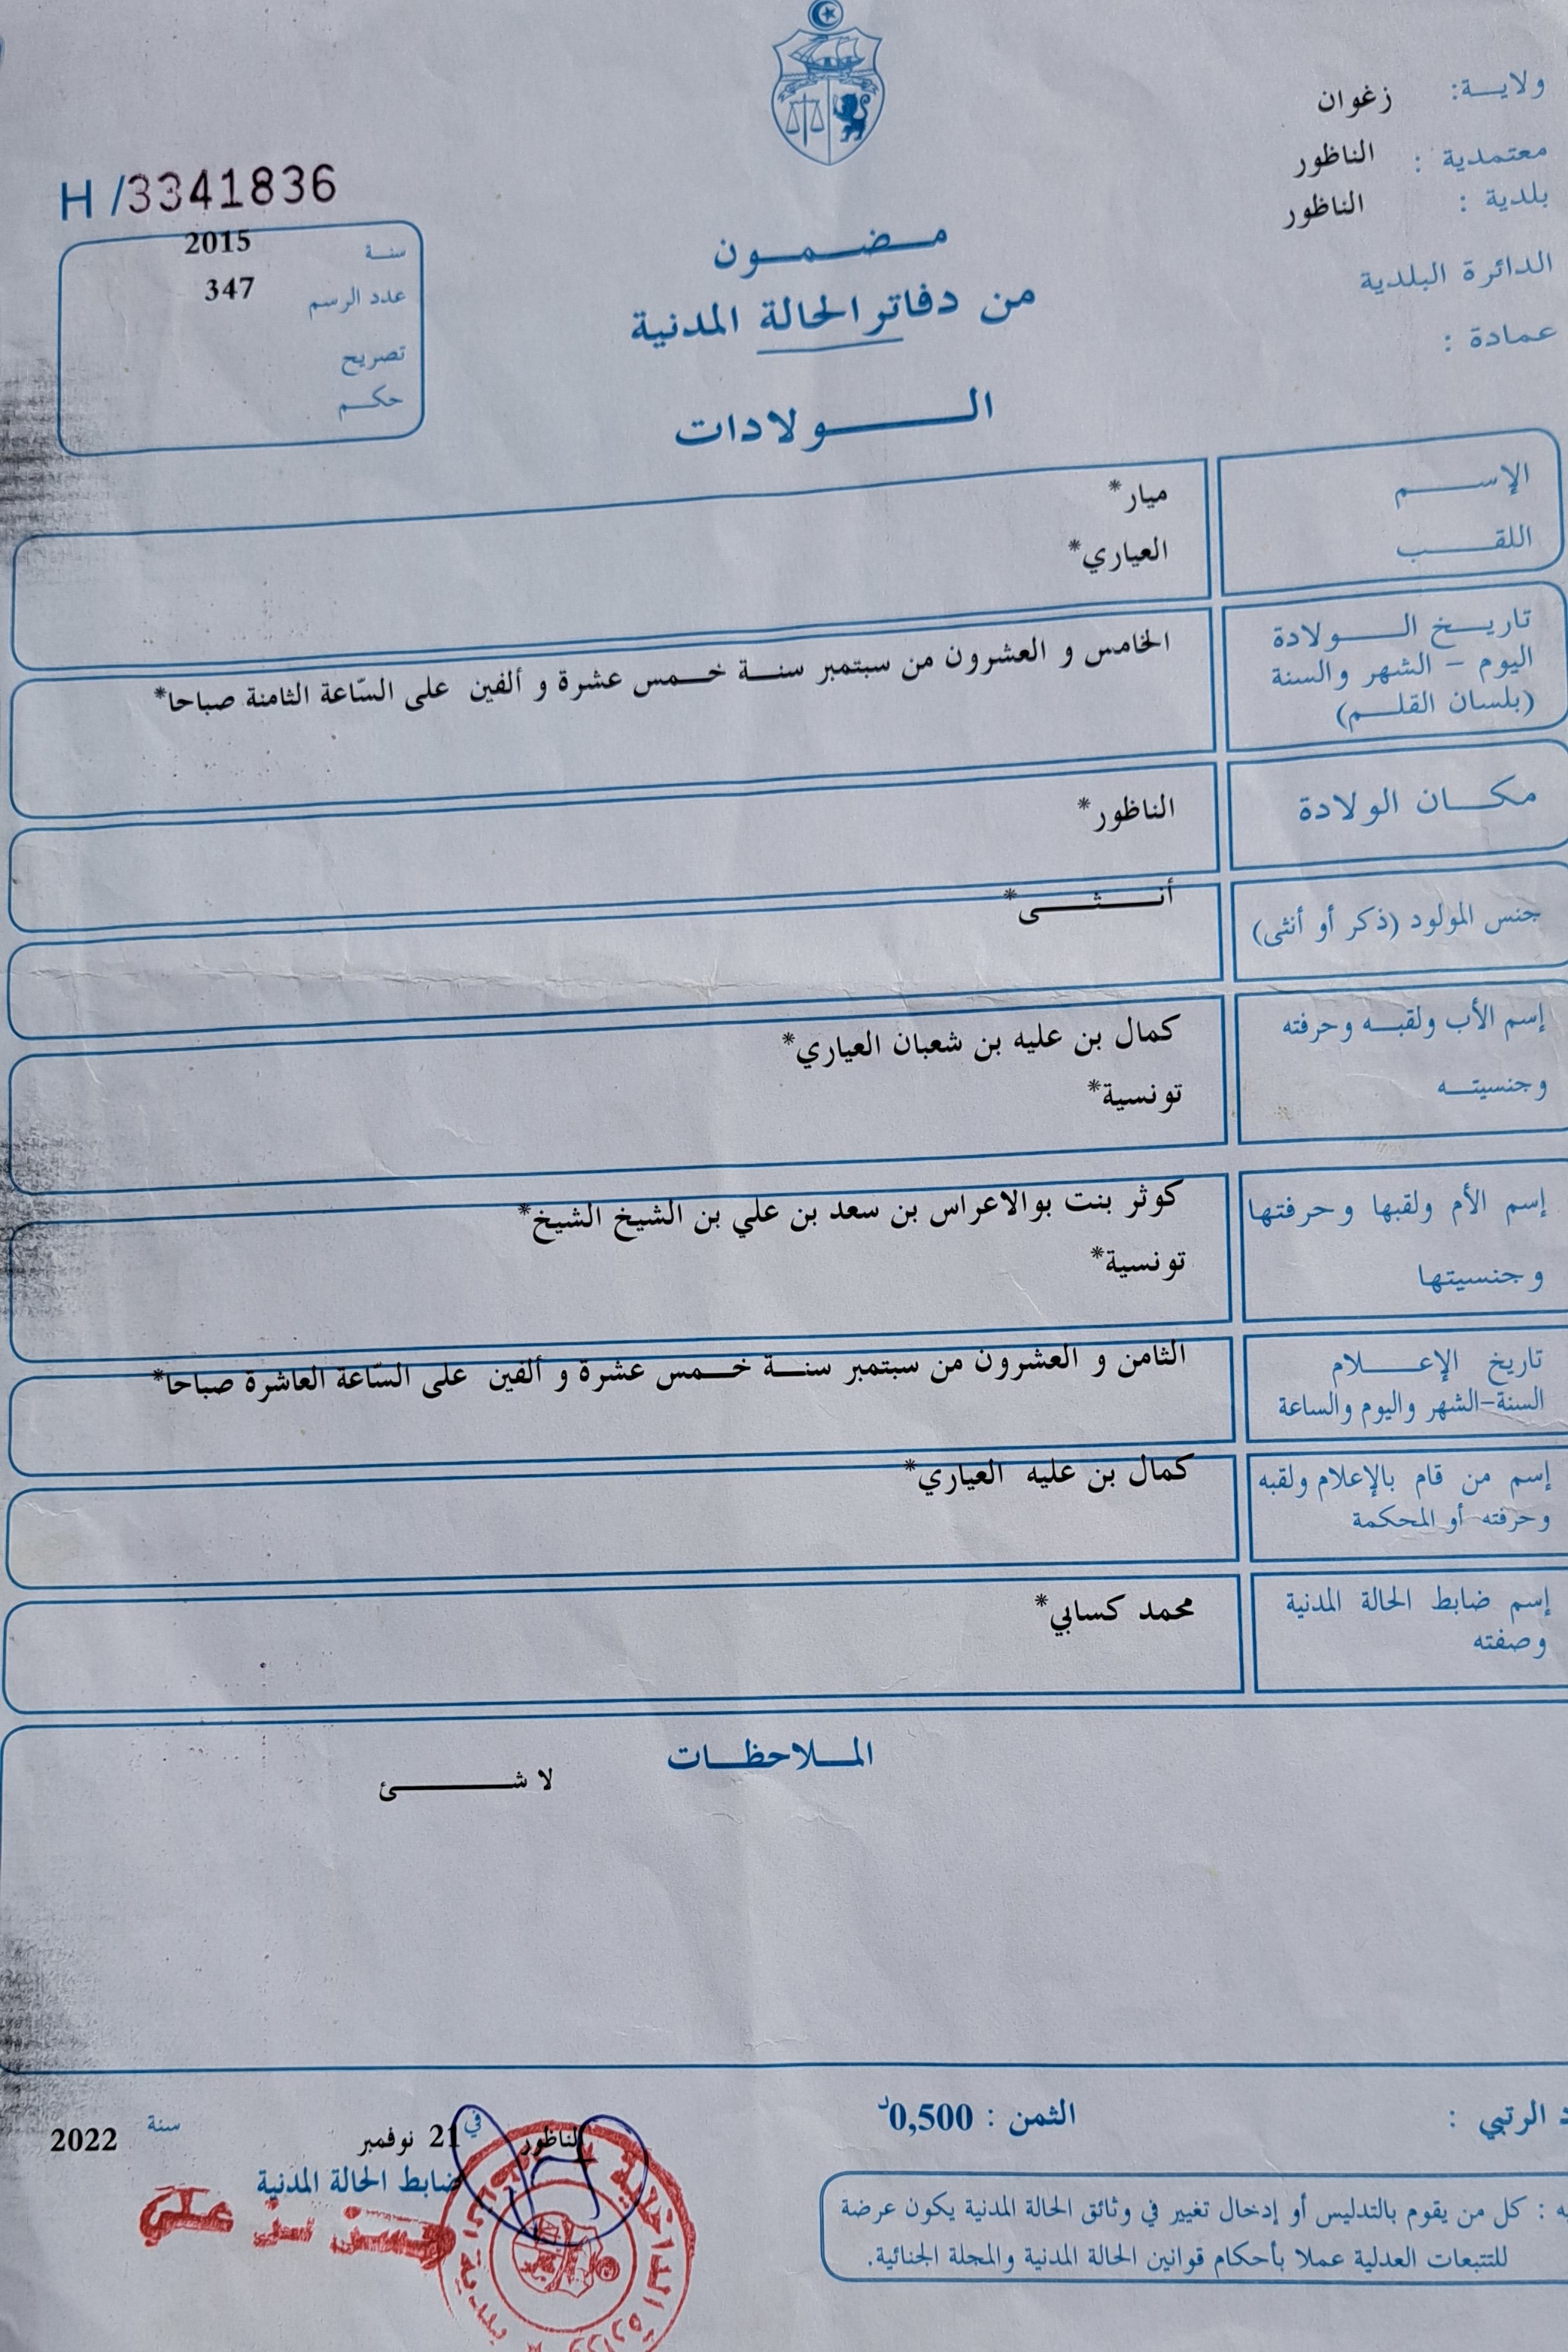 ولاية: زغوان
معتمدية : الناظور
بلدية : الناظور
الدائرة البلدية
عمادة :
H /3341836
سنة 2015
عدد الرسم 347
تصريح
حكم
مضمون
من دفاتر الحالة المدنية
الولادات
الإسم ميار*
اللقب العياري*
تاريخ الولادة
اليوم - الشهر والسنة
(بلسان القلم)
الخامس و العشرون من سبتمبر سنة خمس عشرة و ألفين على السّاعة الثامنة صباحا*
مكان الولادة الناظور*
جنس المولود (ذكر أو أنثى) أنثى*
إسم الأب ولقبه وحرفته كمال بن عليه بن شعبان العياري*
وجنسيته تونسية*
إسم الأم ولقبها وحرفتها كوثر بنت بوالاعراس بن سعد بن علي بن الشيخ الشيخ*
وجنسيتها تونسية*
تاريخ الإعلام
السنة-الشهر واليوم والساعة
الثامن و العشرون من سبتمبر سنة خمس عشرة و ألفين على السّاعة العاشرة صباحا*
إسم من قام بالإعلام ولقبه كمال بن عليه العياري*
وحرفته أو المحكمة
إسم ضابط الحالة المدنية محمد كسابي*
وصفته
الملاحظات
لا شئ
الرتبي :
الثمن : 0,500د
الناظور في 21 نوفمبر سنة 2022
ضابط الحالة المدنية
علي
: كل من يقوم بالتدليس أو إدخال تغيير في وثائق الحالة المدنية يكون عرضة
للتتبعات العدلية عملا بأحكام قوانين الحالة المدنية والمجلة الجنائية.